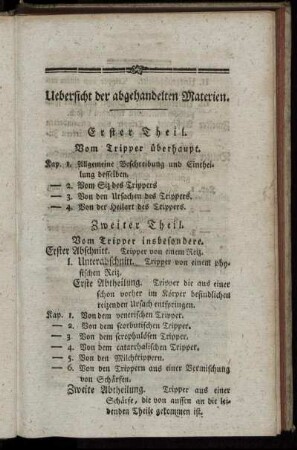 Uebersicht der abgehandelten Materien.
Erster Theil.
Vom Tripper überhaupt.
Kap. 1. Allgemeine Beschreibung und Einthei-
lung desselben.
— 2. Vom Siz des Trippers
— 3. Von den Ursachen des Trippers.
— 4. Von der Heilart des Trippers.
Zweiter Theil.
Vom Tripper insbesondere.
Erster Abschnitt. Tripper von einem Reiz.
I. Unterabschnitt. Tripper von einem phy-
sischen Reiz.
Erste Abtheilung. Tripper die aus einer
schon vorher im Körper befindlichen
reizenden Ursach entspringen.
Kap. 1. Von dem venerischen Tripper.
— 2. Von dem scorbutischen Tripper.
— 3. Von dem scrophulösen Tripper.
— 4. Von dem catarrhalischen Tripper.
— 5. Von den Milchtrippern.
— 6. Von den Trippern aus einer Vermischung
von Schärfen.
Zweite Abtheilung. Tripper aus einer
Schärfe, die von aussen an die lei-
denden Theile gekommen ist.